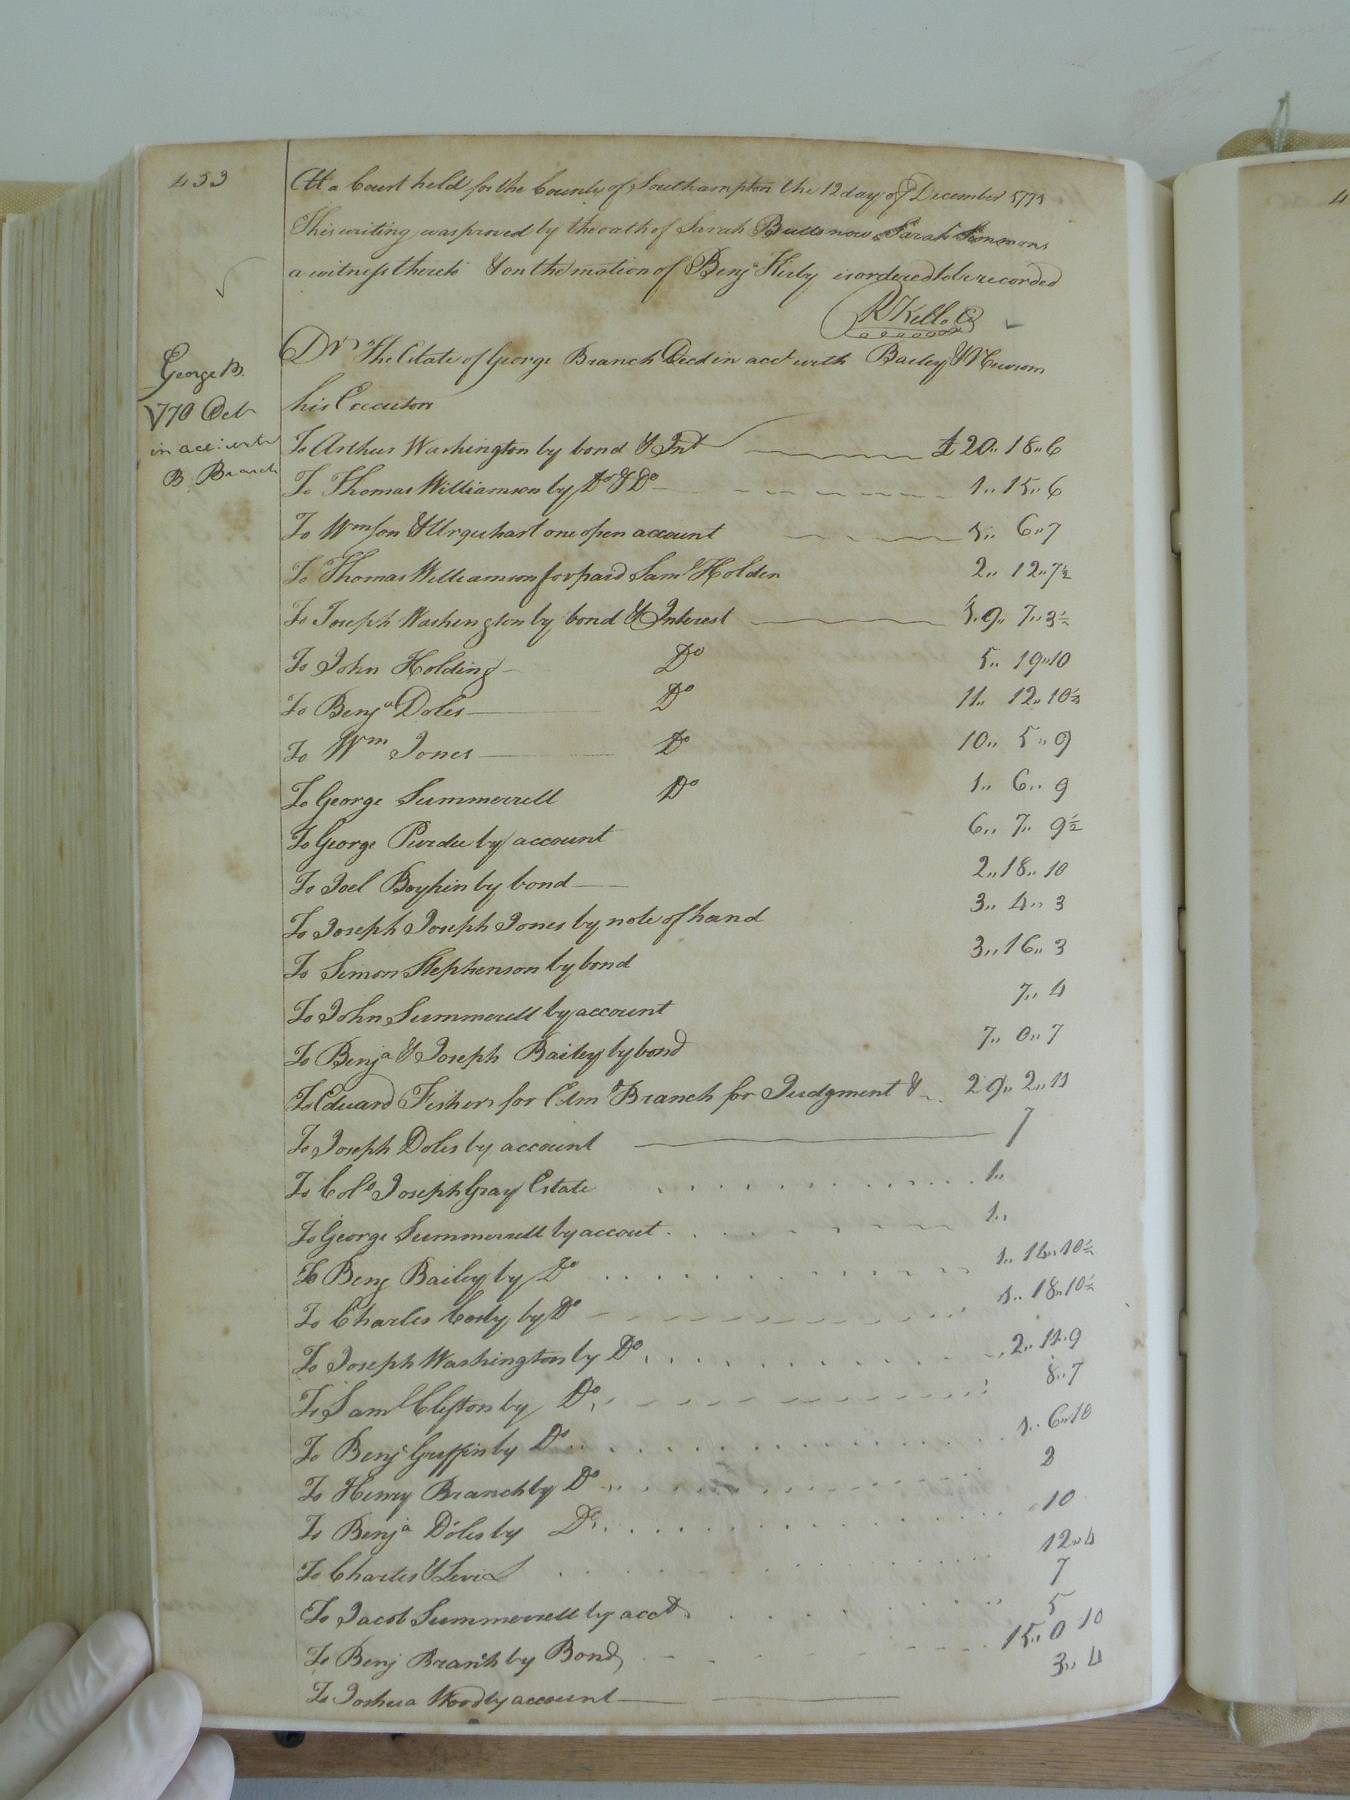 453
At a Court held for the County of Southampton the 12 day of December 1771
This writing was proved by the oath of Sarah Butts now Sarah Simmons
a witness thereto & on the motion of Benja Kirby is ordered to be recorded
R Kello C
George B.
1770 Oct
in acc: with
B Branch
Dr The Estate of George Branch Decd in acct with Bailey & Newsom
his Executors
To Arthur Washington by bond & Int £20,,18,,6
To Thomas Williamson by Do & Do 1,,15,,6
To Wmson & Urquehart one open account 5,, 6,,7
To Thomas Williamson for paid Saml Holden 2,, 12,,7½
To Joseph Washington by bond & Interest 7,,3½
To John Holding Do 5,, 19,,10
To Benja Doles Do 11,, 12,,10½
To Wm Jones Do 10,, 5,,9
To George Summerrell Do 1,, 6,, 9
To George Purdie by account 6,, 7,, 9½
To Joel Boykin by bond 2,,18,,10
To Joseph Joseph Jones by note of hand 3,, 4,, 3
To Simon Stephenson by bond 3,,16,,3
To John Summerell by account 7,,4
To Benja & Joseph Bailey by bond 7,, 0,,7
To Edward Fishers for Edm Branch for Judgment & 29,,2,,11
To Joseph Doles by account 7
To Colo Joseph Gray Estate 1,,
To George Summerrell by accout 1,,
To Benj Bailey by Do 1,,14,,10½
To Charles Cosby by Do 1,,18,,10½
To Joseph Washington by Do 2,,11,,9
To Saml Clifton by Do 8,,7
To Benj Griffin by Do 1,,6,,10
To Henry Branch by Do 2
To Benja Doles by Do 10
To Charles & Levi 12,,4
7
To Jacob Summerrell by acct 5
To Benj Branch by Bond 15,,0 10
To Joshua Wood by account 3,,4